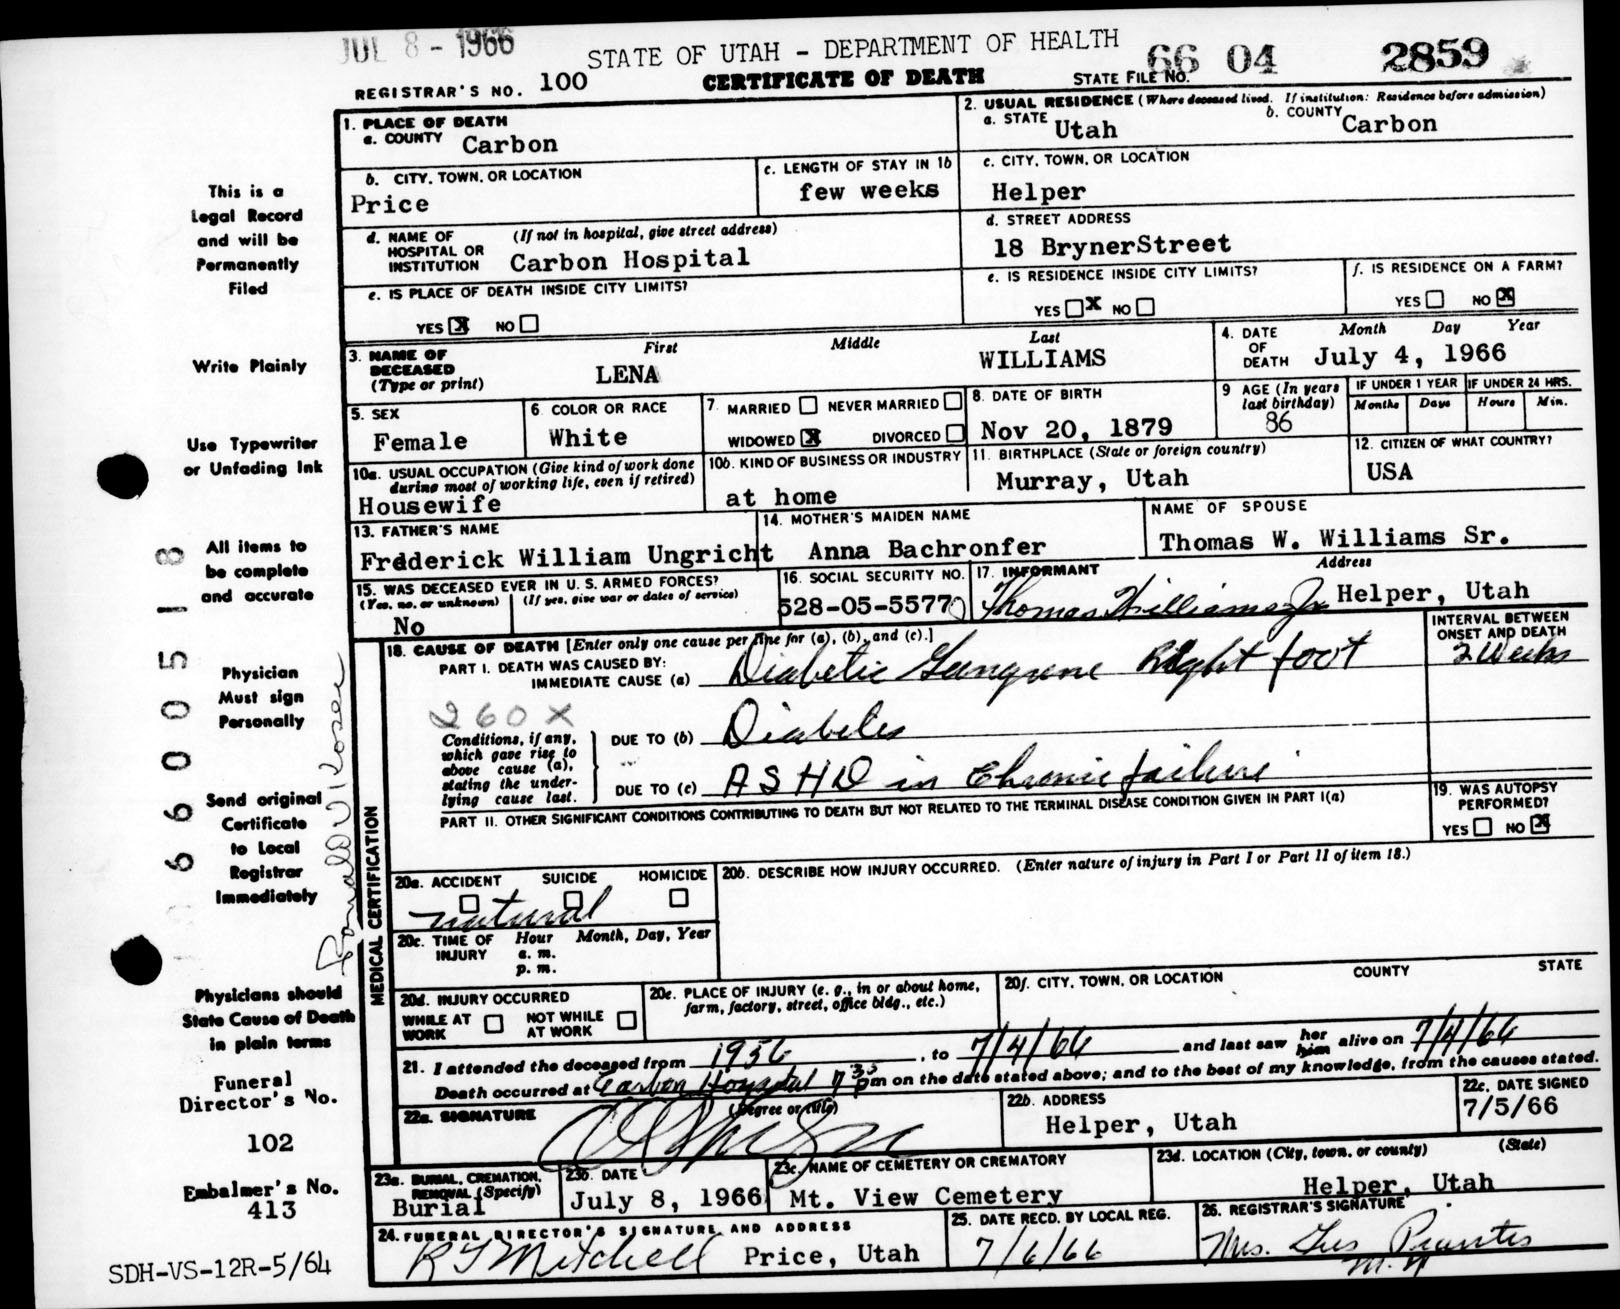 JUL 8 - 1966
STATE OF UTAH - DEPARTMENT OF HEALTH
66 04 2859
REGISTRAR'S NO. 100
CERTIFICATE OF DEATH
STATE FILE NO.
1. PLACE OF DEATH
a. COUNTY Carbon
2. USUAL RESIDENCE (Where deceased lived. If institution: Residence before admission)
a. STATE Utah
b. COUNTY Carbon
b. CITY, TOWN, OR LOCATION
Price
c. LENGTH OF STAY IN 1b
few weeks
c. CITY, TOWN, OR LOCATION
Helper
d. NAME OF HOSPITAL OR INSTITUTION
(If not in hospital, give street address)
Carbon Hospital
d. STREET ADDRESS
18 BrynerStreet
e. IS PLACE OF DEATH INSIDE CITY LIMITS?
YES X NO
e. IS RESIDENCE INSIDE CITY LIMITS?
YES X NO
f. IS RESIDENCE ON A FARM?
YES NO X
3. NAME OF DECEASED
(Type or print)
First Middle Last
LENA WILLIAMS
4. DATE OF DEATH
Month Day Year
July 4, 1966
5. SEX
Female
6. COLOR OR RACE
White
7. MARRIED NEVER MARRIED
WIDOWED X DIVORCED
8. DATE OF BIRTH
Nov 20, 1879
9 AGE (In years last birthday)
86
IF UNDER 1 YEAR
Months Days
IF UNDER 24 HRS.
Hours Min.
10a. USUAL OCCUPATION (Give kind of work done during most of working life, even if retired)
Housewife
10b. KIND OF BUSINESS OR INDUSTRY
at home
11. BIRTHPLACE (State or foreign country)
Murray, Utah
12. CITIZEN OF WHAT COUNTRY?
USA
13. FATHER'S NAME
Frederick William Ungricht
14. MOTHER'S MAIDEN NAME
Anna Bachronfer
NAME OF SPOUSE
Thomas W. Williams Sr.
15. WAS DECEASED EVER IN U. S. ARMED FORCES?
(Yes, no, or unknown) (If yes, give war or dates of service)
No
16. SOCIAL SECURITY NO.
528-05-5577
17. INFORMANT
Thomas Williams Jr
Address
Helper, Utah
MEDICAL CERTIFICATION
18. CAUSE OF DEATH [Enter only one cause per line for (a), (b), and (c).]
INTERVAL BETWEEN ONSET AND DEATH
PART I. DEATH WAS CAUSED BY:
IMMEDIATE CAUSE (a) Diabetic Gangrene Right foot
2 weeks
260X
Conditions, if any, which gave rise to above cause (a), stating the underlying cause last.
DUE TO (b) Diabetes
DUE TO (c) ASHD in Chronic failure
PART II. OTHER SIGNIFICANT CONDITIONS CONTRIBUTING TO DEATH BUT NOT RELATED TO THE TERMINAL DISEASE CONDITION GIVEN IN PART I(a)
19. WAS AUTOPSY PERFORMED?
YES NO X
20a. ACCIDENT SUICIDE HOMICIDE
natural
20b. DESCRIBE HOW INJURY OCCURRED. (Enter nature of injury in Part I or Part II of item 18.)
20c. TIME OF INJURY
Hour Month, Day, Year
a. m.
p. m.
20d. INJURY OCCURRED
WHILE AT WORK NOT WHILE AT WORK
20e. PLACE OF INJURY (e. g., in or about home, farm, factory, street, office bldg., etc.)
20f. CITY, TOWN, OR LOCATION COUNTY STATE
21. I attended the deceased from 1956, to 7/4/66 and last saw her him alive on 7/4/66
Death occurred at Carbon Hospital 7 35 pm on the date stated above; and to the best of my knowledge, from the causes stated.
22a. SIGNATURE
(Degree or title)
22b. ADDRESS
Helper, Utah
22c. DATE SIGNED
7/5/66
23a. BURIAL, CREMATION, REMOVAL (Specify)
Burial
23b. DATE
July 8, 1966
23c. NAME OF CEMETERY OR CREMATORY
Mt. View Cemetery
23d. LOCATION (City, town, or county) (State)
Helper, Utah
24. FUNERAL DIRECTOR'S SIGNATURE AND ADDRESS
R J Mitchell Price, Utah
25. DATE RECD. BY LOCAL REG.
7/6/66
26. REGISTRAR'S SIGNATURE
Mrs. Gus
This is a
Legal Record
and will be
Permanently
Filed
Write Plainly
Use Typewriter
or Unfading Ink
All items to
be complete
and accurate
Physician
Must sign
Personally
Send original
Certificate
to Local
Registrar
Immediately
Physicians should
State Cause of Death
in plain terms
Funeral
Director's No.
102
Embalmer's No.
413
SDH-VS-12R-5/64
6 6 0 0 5 1 8